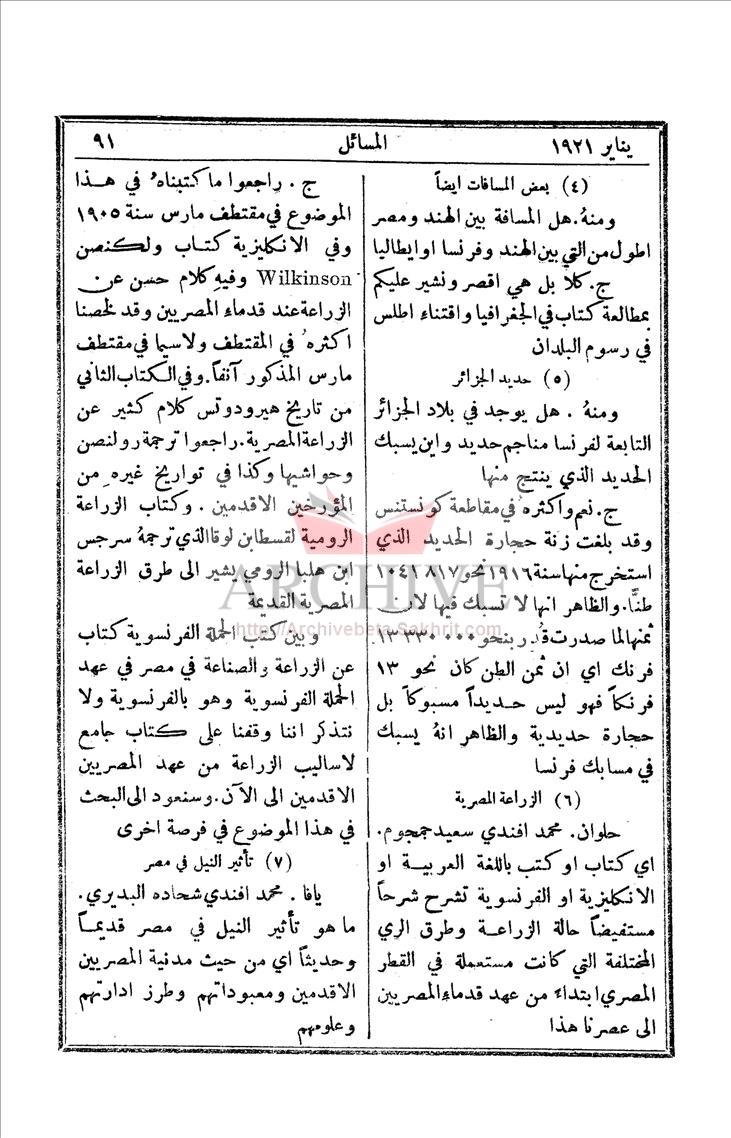 يناير ١٩٢١ المسائل ٩١
(٤) بعض المسافات ايضاً
ومنهُ. هل المسافة بين الهند ومصر
اطول من التي بين الهند وفرنسا او ايطاليا
ج. كلا بل هي اقصر ونشير عليكم
بمطالعة كتاب في الجغرافيا واقتناء اطلس
في رسوم البلدان
(٥) حديد الجزائر
ومنهُ . هل يوجد في بلاد الجزائر
التابعة لفرنسا مناجم حديد واين يسبك
الحديد الذي ينتج منها
ج. نعم واكثرهُ في مقاطعة كونستنس
وقد بلغت زنة حجارة الحديد الذي
استخرج منها سنة ١٩١٦ نحو ٨١٧ ١٠٤١
طنًّا. والظاهر انها لا تسبك فيها لان
ثمنها لما صدرت قُدر بنحو ١٣٣٣٠٠٠٠
فرنك اي ان ثمن الطن كان نحو ١٣
فرنكاً فهو ليس حديداً مسبوكاً بل
حجارة حديدية والظاهر انهُ يسبك
في مسابك فرنسا
(٦) الزراعة المصرية
حلوان. محمد افندي سعيد جمجوم.
اي كتاب او كتب باللغة العربية او
الانكليزية او الفرنسوية تشرح شرحاً
مستفيضاً حالة الزراعة وطرق الري
المختلفة التي كانت مستعملة في القطر
المصري ابتداءً من عهد قدماء المصريين
الى عصرنا هذا
ج. راجعوا ما كتبناهُ في هذا
الموضوع في مقتطف مارس سنة ١٩٠٥
وفي الانكليزية كتاب ولكنصن
Wilkinson وفيهِ كلام حسن عن
الزراعة عند قدماء المصريين وقد لخصنا
اكثرهُ في المقتطف ولاسيما في مقتطف
مارس المذكور آنفاً. وفي الكتاب الثاني
من تاريخ هيرودوتس كلام كثير عن
الزراعة المصرية. راجعوا ترجمة رولنصن
وحواشيها وكذا في تواريخ غيرهِ من
المؤرخين الاقدمين . وكتاب الزراعة
الرومية لقسطا بن لوقا الذي ترجمهُ سرجس
ابن هلبا الرومي يشير الى طرق الزراعة
المصرية القديمة
وبين كتب الحملة الفرنسوية كتاب
عن الزراعة والصناعة في مصر في عهد
الحملة الفرنسوية وهو بالفرنسوية ولا
نتذكر اننا وقفنا على كتاب جامع
لاساليب الزراعة من عهد المصريين
الاقدمين الى الآن. وسنعود الى البحث
في هذا الموضوع في فرصة اخرى
(٧) تأثير النيل في مصر
يافا . محمد افندي شحاده البديري.
ما هو تأثير النيل في مصر قديماً
وحديثاً اي من حيث مدنية المصريين
الاقدمين ومعبوداتهم وطرز ادارتهم
وعلومهم
ARCHIVE
http://Archivebeta.Sakhrit.com